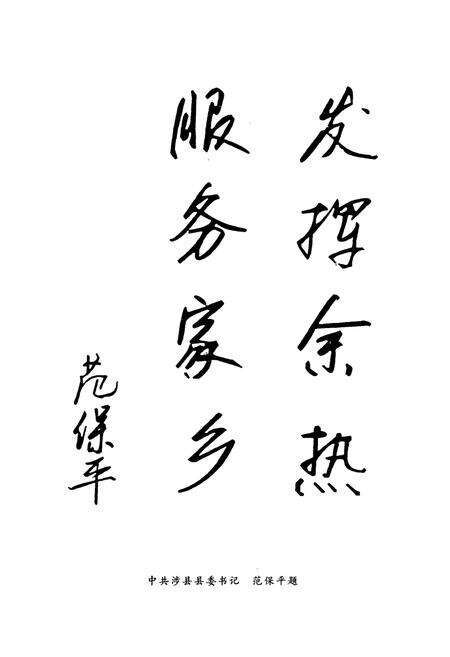 发挥余热
服务家乡
范保平
中共涉县县委书记 范保平题